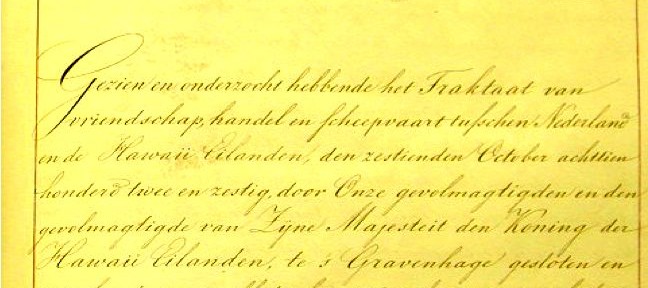 Gezien en onderzocht hebbende het Traktaat van
vriendschap, handel en scheepvaart tusschen Nederland
en de Hawaii Eilanden, den zestienden October achttien
honderd twee en zestig, door Onze gevolmagtigden en den
gevolmagtigde van Zijne Majesteit den Koning der
Hawaii Eilanden, te 's Gravenhage gesloten en